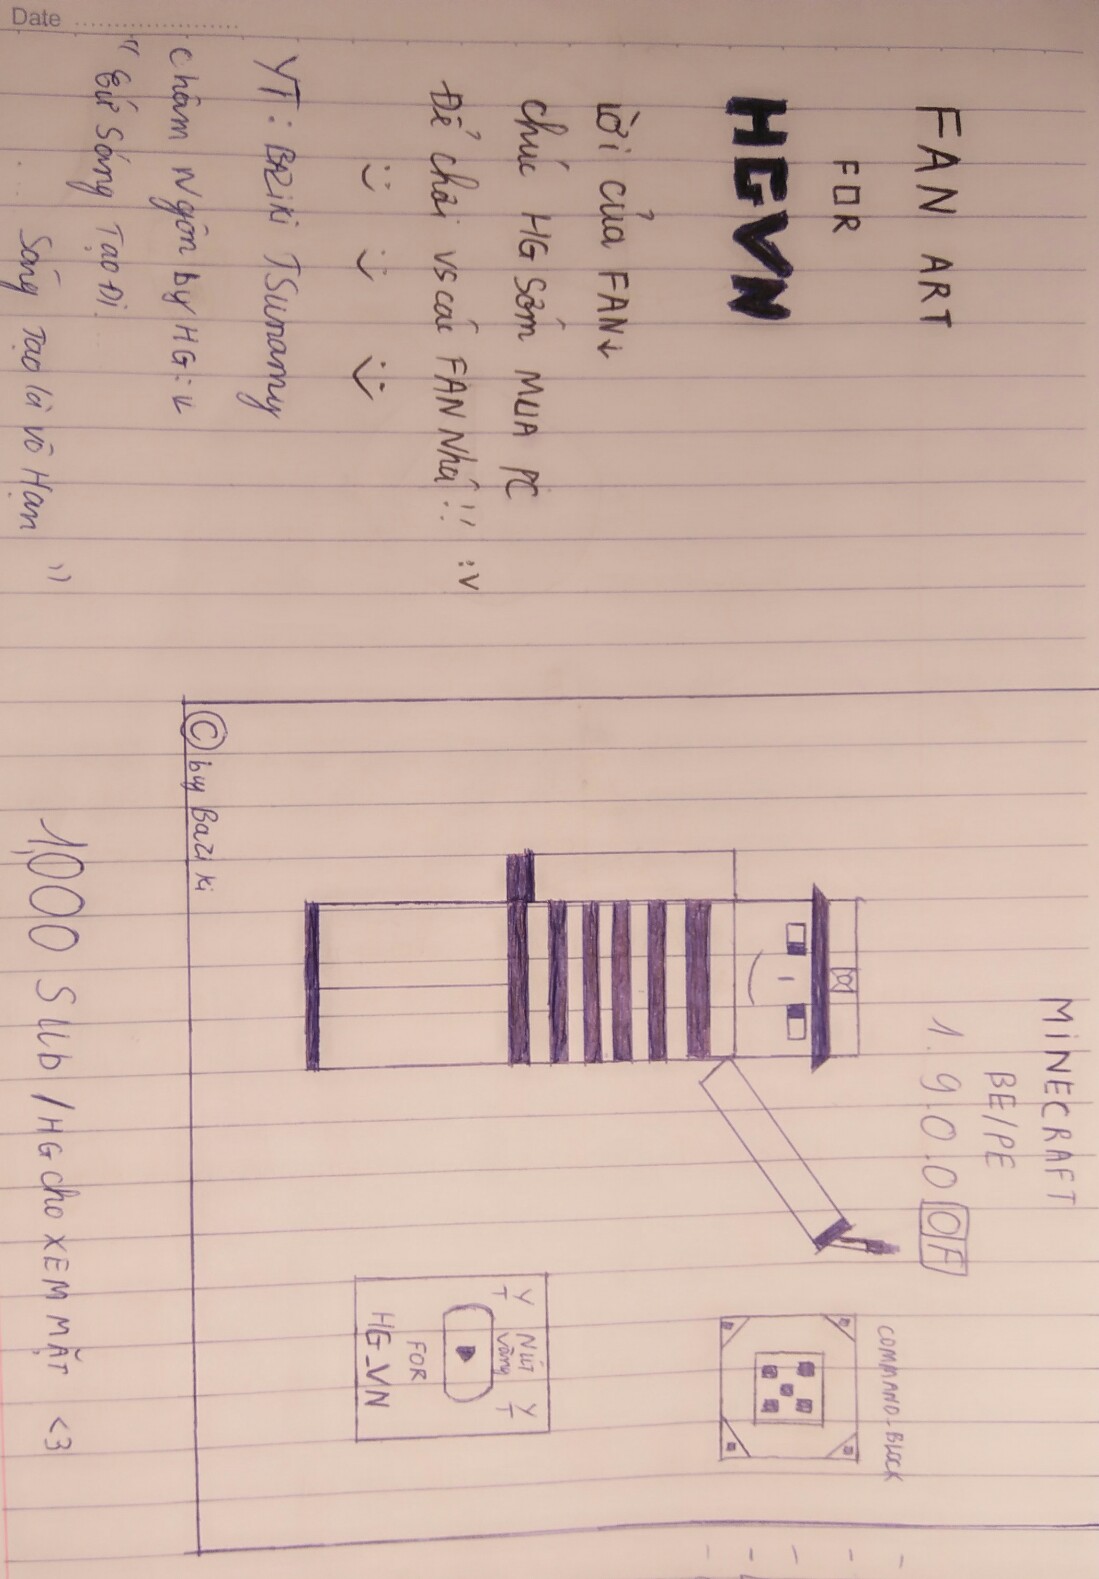 FAN ART
FOR
HGVN
lời của FAN↓
chúc HG sớm MUA PC
Để chơi vs các FAN Nhá!! :V
YT: BAZiKi TSunamy
châm Ngôn by HG:↓
"Cứ Sáng Tạo Đi.
Sáng Tạo là vô Hạn"
MiNECRAFT
BE/PE
1.9.0.0 OF
COMMAND-BLOCK
YT Nút YT
vàng
FOR
HG_VN
© by Baziki
1,000 Sub / HG cho XEM MẶT <3
Date